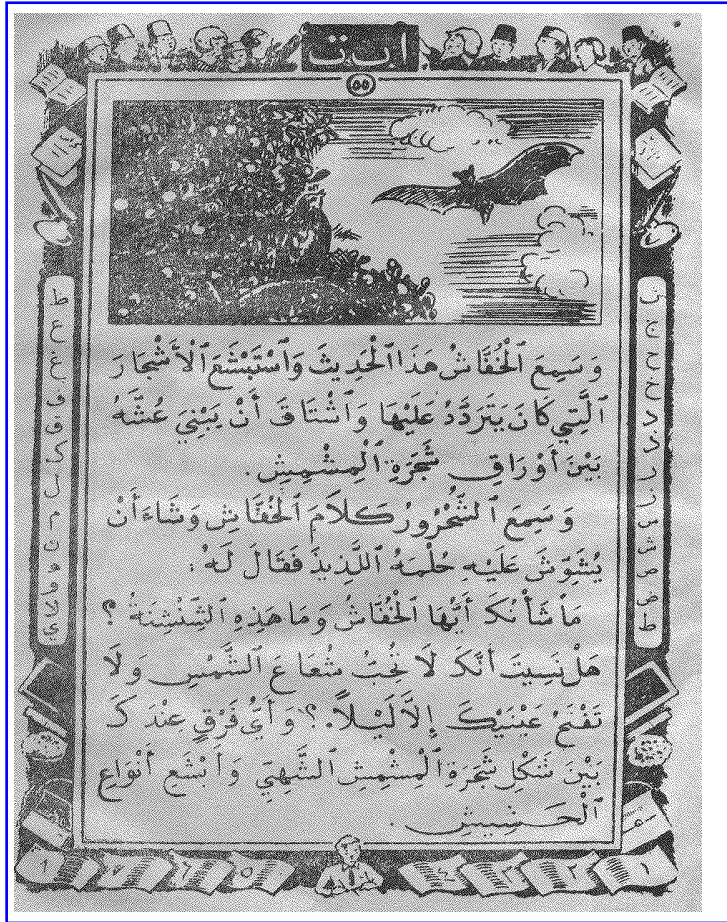 ا ب ت
٥٥
وَسَمِعَ ٱلْخُفَّاشُ هَذَا ٱلْحَدِيثَ وَٱسْتَبْشَعَ ٱلْأَشْجَارَ
ٱلَّتِي كَانَ يَتَرَدَّدُ عَلَيْهَا وَٱشْتَاقَ أَنْ يَبْنِيَ عُشَّهُ
بَيْنَ أَوْرَاقِ شَجَرَةِ ٱلْمِشْمِشِ.
وَسَمِعَ ٱلشُّحْرُورُ كَلَامَ ٱلْخُفَّاشِ وَشَاءَ أَنْ
يُشَوِّشَ عَلَيْهِ حُلْمَهُ ٱللَّذِيذَ فَقَالَ لَهُ:
مَا شَأْنُكَ أَيُّهَا ٱلْخُفَّاشُ وَمَا هَذِهِ ٱلشِّنْشِنَةُ ؟
هَلْ نَسِيتَ أَنَّكَ لَا تُحِبُّ شُعَاعَ ٱلشَّمْسِ وَلَا
تَفْتَحُ عَيْنَيْكَ إِلَّا لَيْلاً.؟ وَأَيُّ فَرْقٍ عِنْدَكَ
بَيْنَ شَكْلِ شَجَرَةِ ٱلْمِشْمِشِ ٱلشَّهِيِّ وَأَبْشَعِ أَنْوَاعِ
ٱلْحَشِيشِ.
٨ ٧ ٦ ٥ ٤ ٣ ٢ ١